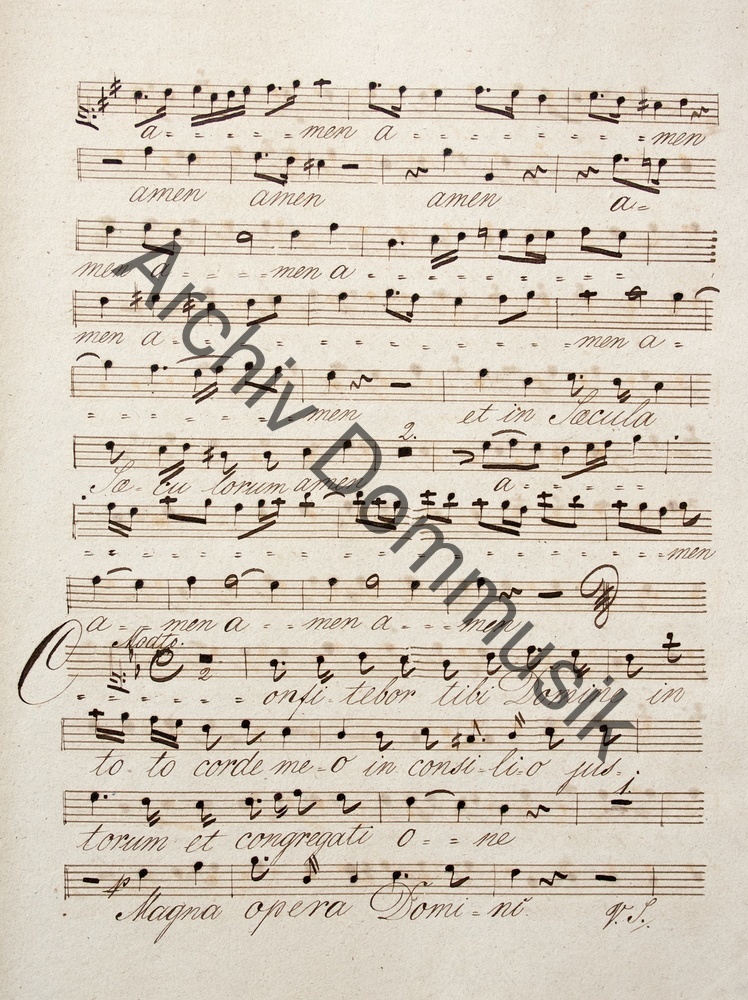 a - - - - - men a - - - - - - - men
amen amen amen a=
men a - - - - men a - - - - - - - -
men a - - - - - - - - - - men a - =
= = = = = = = men et in Sæcula
2.
Sæ-cu lorum amen a - - - - - -
= = = = = = = = = = = = = = = men
a - - men a - - men a - - - men
Modto.
2
Confi-tebor tibi Domine in
to-to corde me-o in consi-li-o jus-
1.
torum et congregati o - = ne
p
Magna opera Domi-ni V.S.
Archiv Dommusik